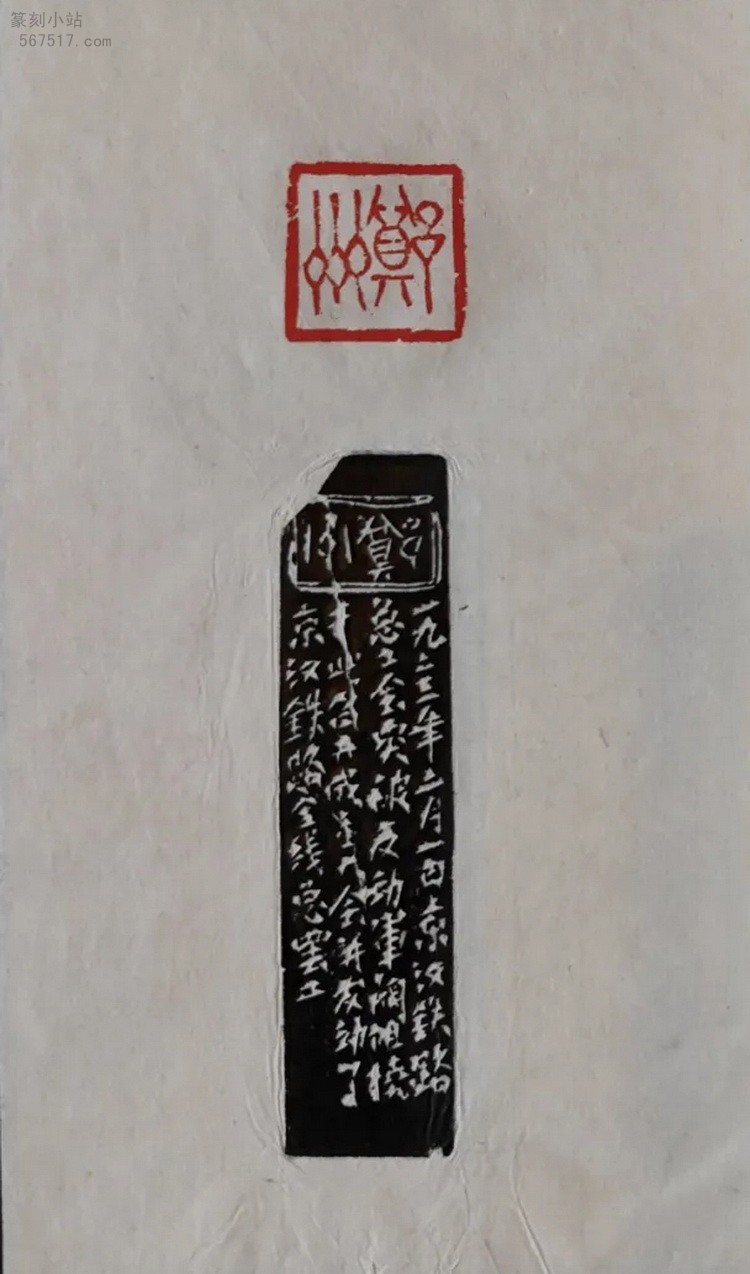 篆刻小站
567517.com
鄭州
鄭州
一九二三年二月一日京汉鉄路
总工会突被反动軍阀阻撓
于此召开成立大会并发动了
京汉鉄路全线总罢工